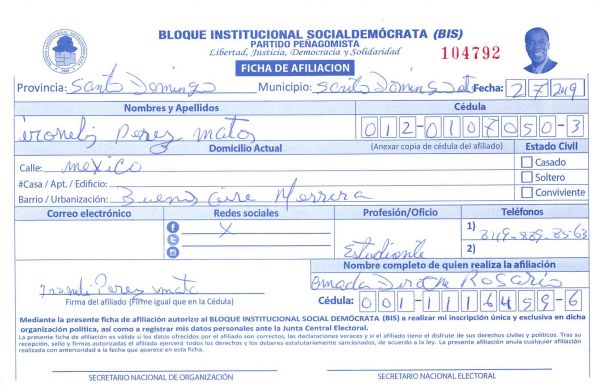 BLOQUE INSTITUCIONAL SOCIALDEMÓCRATA (BIS)
PARTIDO PEÑAGOMISTA
Libertad, Justicia, Democracia y Solidaridad
104792
FICHA DE AFILIACION
Provincia: Santo Domingo Municipio: Santo Domingo Fecha: 2 7 2019
Nombres y Apellidos Cédula
Perez Matos 012-0107050-3
Domicilio Actual (Anexar copia de cédula del afiliado) Estado Civil
Calle: mexico Casado
#Casa / Apt. / Edificio: Soltero
Barrio / Urbanización: Buenos Aire Herrera Conviviente
Correo electrónico Redes sociales Profesión/Oficio Teléfonos
X Estudiante 1) 849-889-8563
2)
Nombre completo de quien realiza la afiliación
Perez Rosario
Firma del afiliado (Firme igual que en la Cédula) Cédula: 001-1116459-6
Mediante la presente ficha de afiliación autorizo al BLOQUE INSTITUCIONAL SOCIAL DEMÓCRATA (BIS) a realizar mi inscripción única y exclusiva en dicha
organización política, así como a registrar mis datos personales ante la Junta Central Electoral.
La presente ficha de afiliación es válida si los datos ofrecidos por el afiliado son correctos, las declaraciones veraces y si el afiliado tiene el disfrute de sus derechos civiles y políticos. Tras su
recepción, sello y firmas autorizadas el afiliado ejercerá todos los derechos y los deberes estatutariamente sancionados, de acuerdo a la ley. La presente afiliación anula cualquier afiliación
realizada con anterioridad a la fecha que aparece en esta ficha.
SECRETARIO NACIONAL DE ORGANIZACIÓN SECRETARIO NACIONAL ELECTORAL